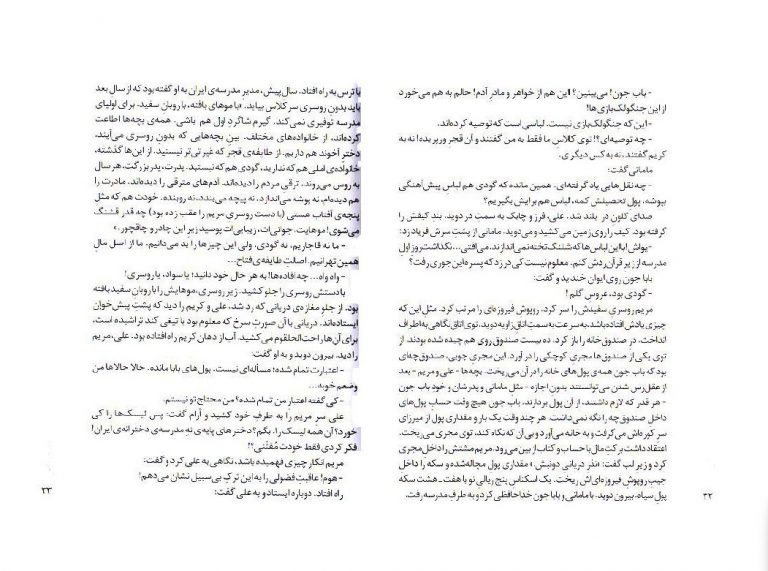 - باب جون! می‌بینین؟ این هم از خواهر و مادرِ آدم! حالم به هم می‌خورد
از این جنگولک‌بازی‌ها!
- این که جنگولک‌بازی نیست. لباسی است که توصیه کرده‌اند.
- چه توصیه‌ای؟! توی کلاسِ ما فقط به من گفتند و آن قجرِ ورپریده! نه به
کریم گفتند، نه به کسِ دیگری.
مامانی گفت:
- چه نقل‌هایی یاد گرفته‌ای. همین مانده که گودی هم لباس پیش‌آهنگی
بپوشه. پول تحصیلش کمه، اسم هم برایش بگیریم؟
صدای کلون در بلند شد. علی، فرز و چابک به سمتِ در دوید. بندِ کیفش را
گرفته بود. کیف را روی زمین می‌کشید و می‌دوید. مامانی از پشتِ سرش فریاد زد:
- یواش! با این لباس‌ها که شلنگ‌تخته نمی‌اندازند. می‌افتی... نگذاشت روز اولِ
مدرسه از زیرِ قرآن ردش کنم. معلوم نیست کی در زد که پسره این‌جوری رفت؟
بابا جون روی ایوان خندید و گفت:
- گودی بود، عروسِ گلم!
مریم روسری سفیدش را سر کرد. روپوش فیروزه‌ای را مرتب کرد. مثل این که
چیزی یادش افتاده باشد، به سرعت به سمتِ اتاقِ زاویه دوید. توی اتاق نگاهی به اطراف
انداخت. در صندوق خانه را باز کرد. ده بیست صندوق روی هم چیده شده بودند. از
توی یکی از صندوق‌ها مجری کوچکی را در آورد. این مجری چوبی، صندوق‌چه‌ای
بود که باب جون همه‌ی پول‌های خانه را در آن می‌ریخت. بچه‌ها - علی و مریم - بعد
از عقل‌رس شدن می‌توانستند بدون اجازه - مثل مامانی و پدرشان و خودِ باب جون
- هر قدر که لازم داشتند، از آن پول بردارند. باب جون هیچ وقت حساب پول‌های
داخل صندوق‌چه را نگه نمی‌داشت. هر چند وقت یک بار و مقداری پول از میرزای
سرِ کوره‌اش می‌گرفت و به خانه می‌آورد و بی آن که نگاه کند، توی مجری می‌ریخت.
اعتقاد داشت برکتِ مال با حساب و کتاب از بین می‌رود. مریم مشتش را داخل مجری
کرد و زیر لب گفت: «نذر دریانی دونبش.» مقداری پولِ مچاله‌شده و سکه را داخل
جیب روپوش فیروزه‌ای‌اش ریخت. یک اسکناسِ پنج ریالیِ نو با هفت - هشت سکه
پولِ سیاه. بیرون دوید. با مامانی و بابا جون خداحافظی کرد و به طرفِ مدرسه رفت.
۳۲
با ترس به راه افتاد. سال پیش، مدیرِ مدرسه‌ی ایران به او گفته بود که از سالِ بعد
باید بدونِ روسری سرِ کلاس بیاید. «با موهای بافته، با روبانِ سفید. برای اولیای
مدرسه توفیری نمی‌کند. گیرم شاگردِ اول هم باشی. همه‌ی بچه‌ها اطاعت
کرده‌اند. از خانواده‌های مختلف. بینِ بچه‌هایی که بدونِ روسری می‌آیند،
دخترِ آخوند هم داریم. از طایفه‌ی قجر که غیرتی‌تر نیستید. از این‌ها گذشته،
خانواده‌ی اُملی هم که ندارید. گودی هم که نیستید. پدرت، پدر بزرگت، هر سال
به روس می‌روند. ترقیِ مردم را دیده‌اند. آدم‌های مترقی را دیده‌اند. مادرت را
دیده‌ام، نه پوشه می‌اندازد، نه پیچه می‌بندد، نه روبنده. خودت هم که مثل
پنجه‌ی آفتاب هستی (با دست روسریِ مریم را عقب زده بود) چه قدر قشنگ
می‌شوی! موهایت، جوانی‌ات، زیبایی‌ات پوسید زیرِ این چادر و چاقچور.»
- ما نه قاجاریم، نه گودی. ولی این چیزها را بد می‌دانیم. ما از اسل مالِ
همین تهرانیم. اصالتِ طایفه‌ی فتاح...
- واه واه... چه افاده‌ها! به هر حال خود دانید! یا سواد، یا روسری!
با دستش روسری را جلو کشید. زیر روسری، موهایش را با روبانِ سفید بافته
بود. از جلوِ مغازه‌ی دریانی که رد شد، علی و کریم را دید که پشتِ پیش‌خوان
ایستاده‌اند. دریانی با آن صورتِ سرخ که معلوم بود با تیغی کند تراشیده است،
برای آن‌ها، راحت‌الحلقوم می‌کشید. آب از دهانِ کریم راه افتاده بود. علی، مریم
را دید. بیرون دوید و به او گفت:
- اعتبارت تمام شده! مسأله‌ای نیست. پول‌های بابا مانده. حالا حالاها من
وضعم خوبه...
- کی گفته اعتبارِ من تمام شده؟ من محتاج تو نیستم.
علی سرِ مریم را به طرفِ خود کشید و آرام گفت: پس لیسک‌ها را کی
خورد؟ آن همه لیسک را. بگم؟ دخترهای پایه‌ی نهِ مدرسه‌ی دخترانه‌ی ایران!
فکر کردی فقط خودت مُفتّشی؟!
مریم انگار چیزی فهمیده باشد، نگاهی به علی کرد و گفت:
- هوم! عاقبتِ فضولی را به این ترکِ بی‌سبیل نشان می‌دهم!
راه افتاد. دوباره ایستاد و به علی گفت:
۳۳